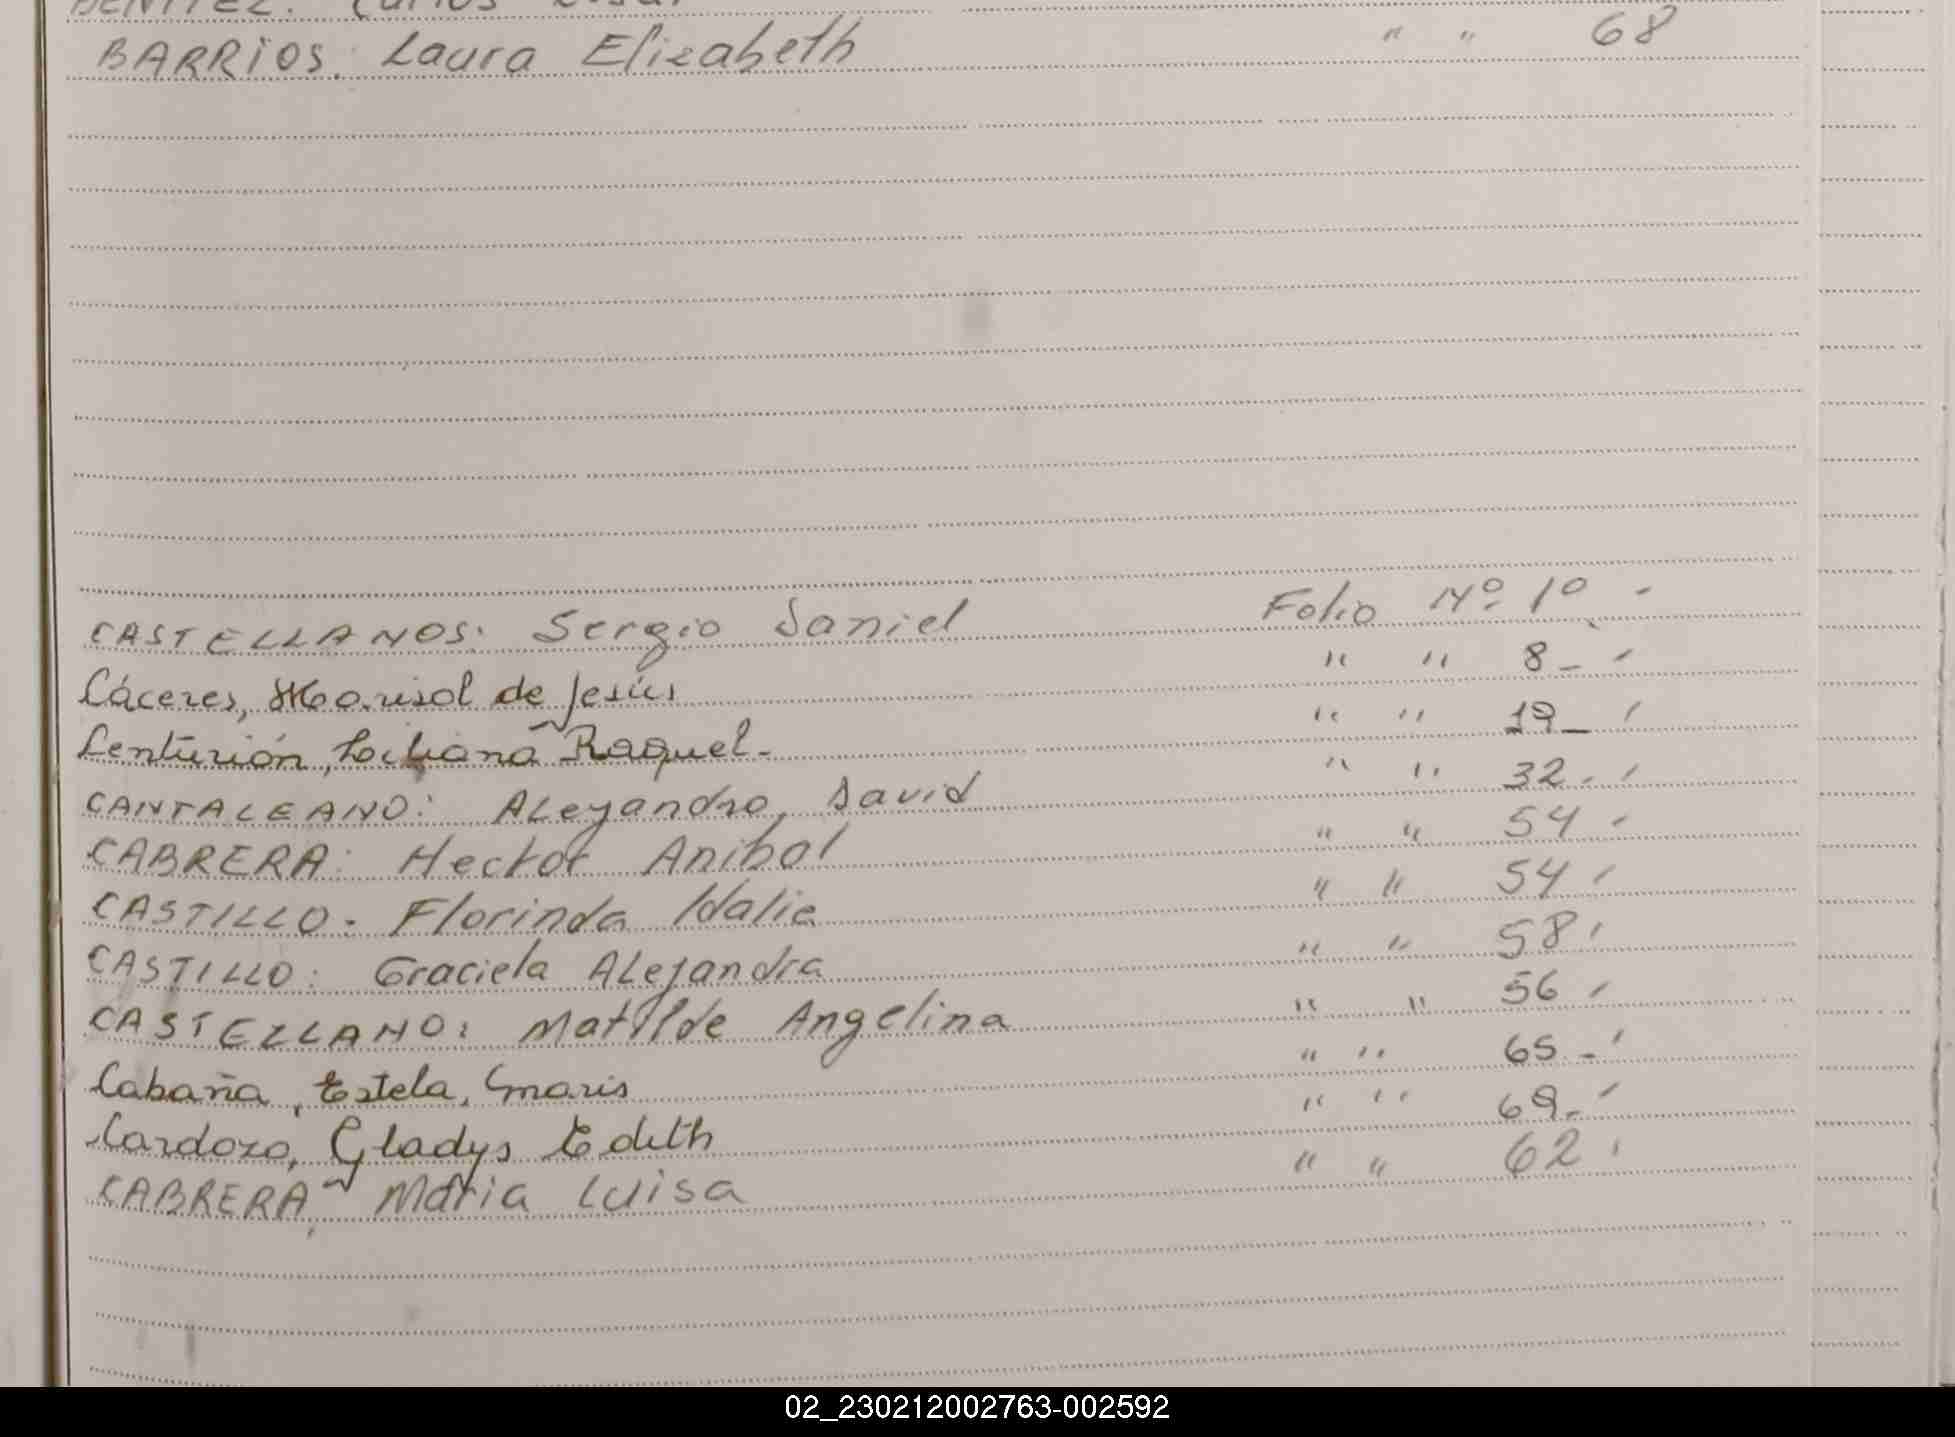 BENITEZ: Carlos
BARRIOS. Laura Elizabeth " " 68
CASTELLANOS: Sergio Daniel Folio Nº 1º -
Cáceres, Marisol de Jesús " " 8_ -
Centurión, Liliana Raquel- " " 19_ -
CANTALEANO: ALejandro, David " " 32. -
CABRERA: Hector Anibal " " 54 -
CASTILLO- Florinda Idalia " " 54 -
CASTILLO: Graciela ALejandra " " 58 -
CASTELLANO: Matilde Angelina " " 56 -
Cabaña, Estela, maris " " 65 - -
Cardozo, Gladys Edith " " 69- -
CABRERA, Maria Luisa " " 62 -
02_230212002763-002592